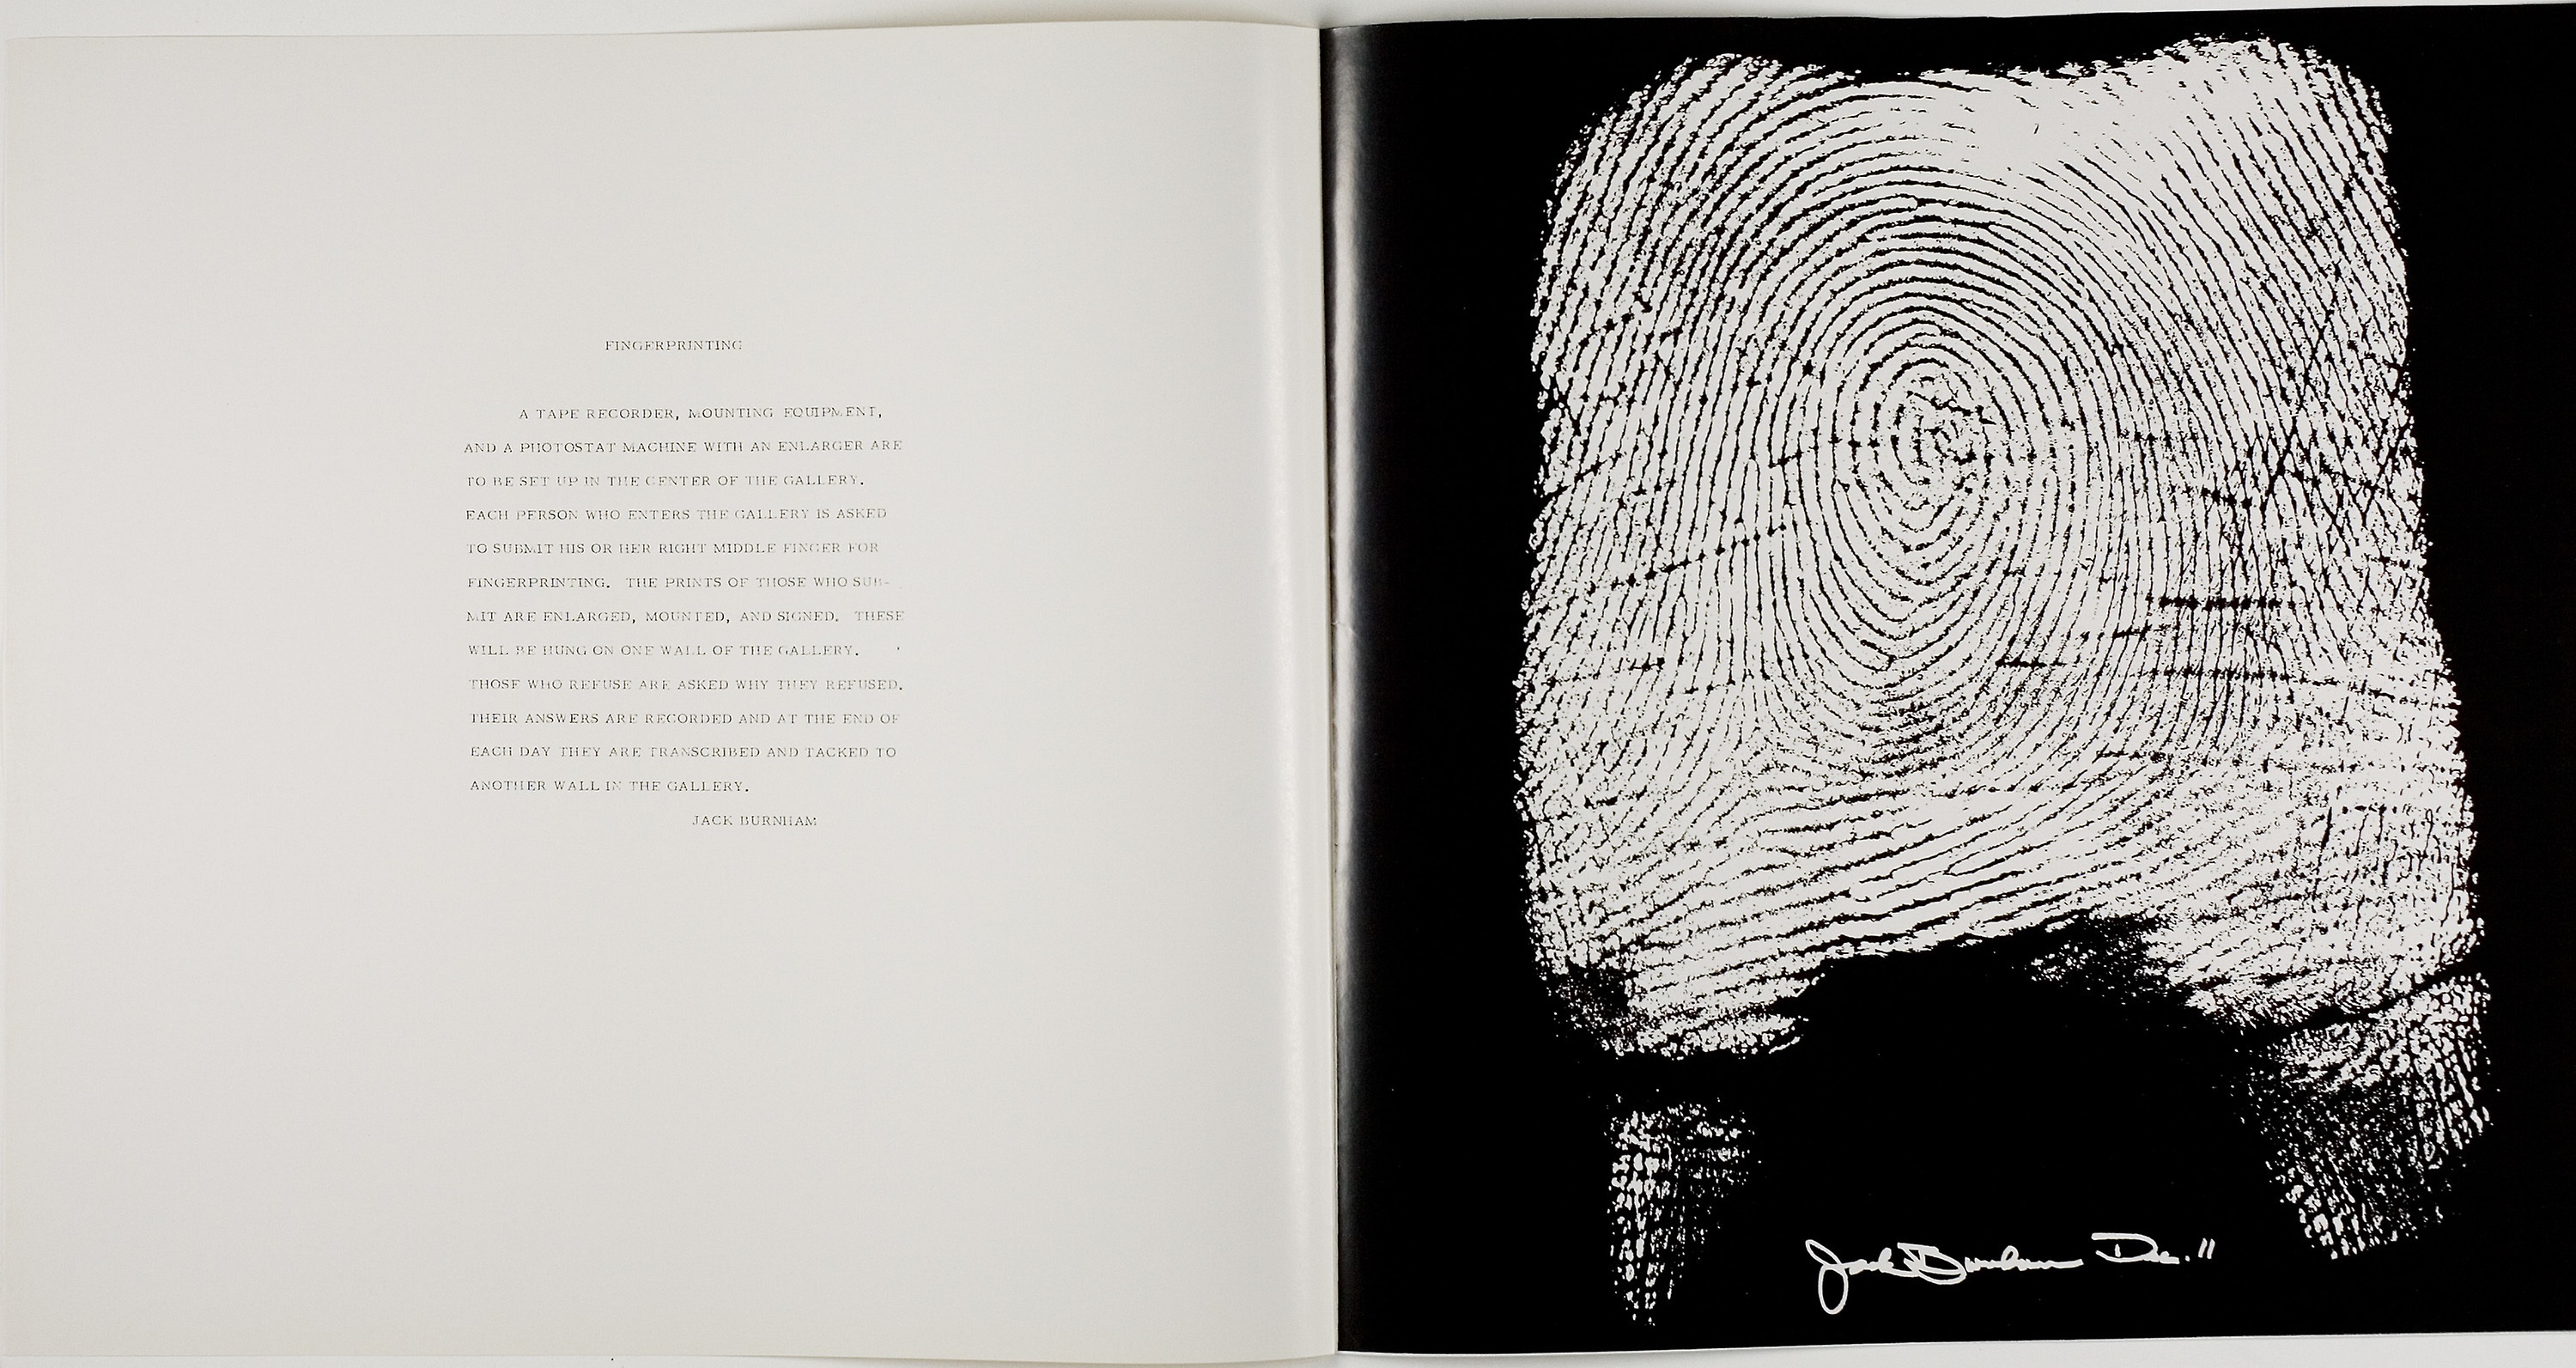 FINGERPRINTING
A TAPE RECORDER, MOUNTING EQUIPMENT,
AND A PHOTOSTAT MACHINE WITH AN ENLARGER ARE
TO BE SET UP IN THE CENTER OF THE GALLERY.
EACH PERSON WHO ENTERS THE GALLERY IS ASKED
TO SUBMIT HIS OR HER RIGHT MIDDLE FINGER FOR
FINGERPRINTING. THE PRINTS OF THOSE WHO SUB-
MIT ARE ENLARGED, MOUNTED, AND SIGNED. THESE
WILL BE HUNG ON ONE WALL OF THE GALLERY.
THOSE WHO REFUSE ARE ASKED WHY THEY REFUSED.
THEIR ANSWERS ARE RECORDED AND AT THE END OF
EACH DAY THEY ARE TRANSCRIBED AND TACKED TO
ANOTHER WALL IN THE GALLERY.
JACK BURNHAM
Jack Burnham Dec. 11